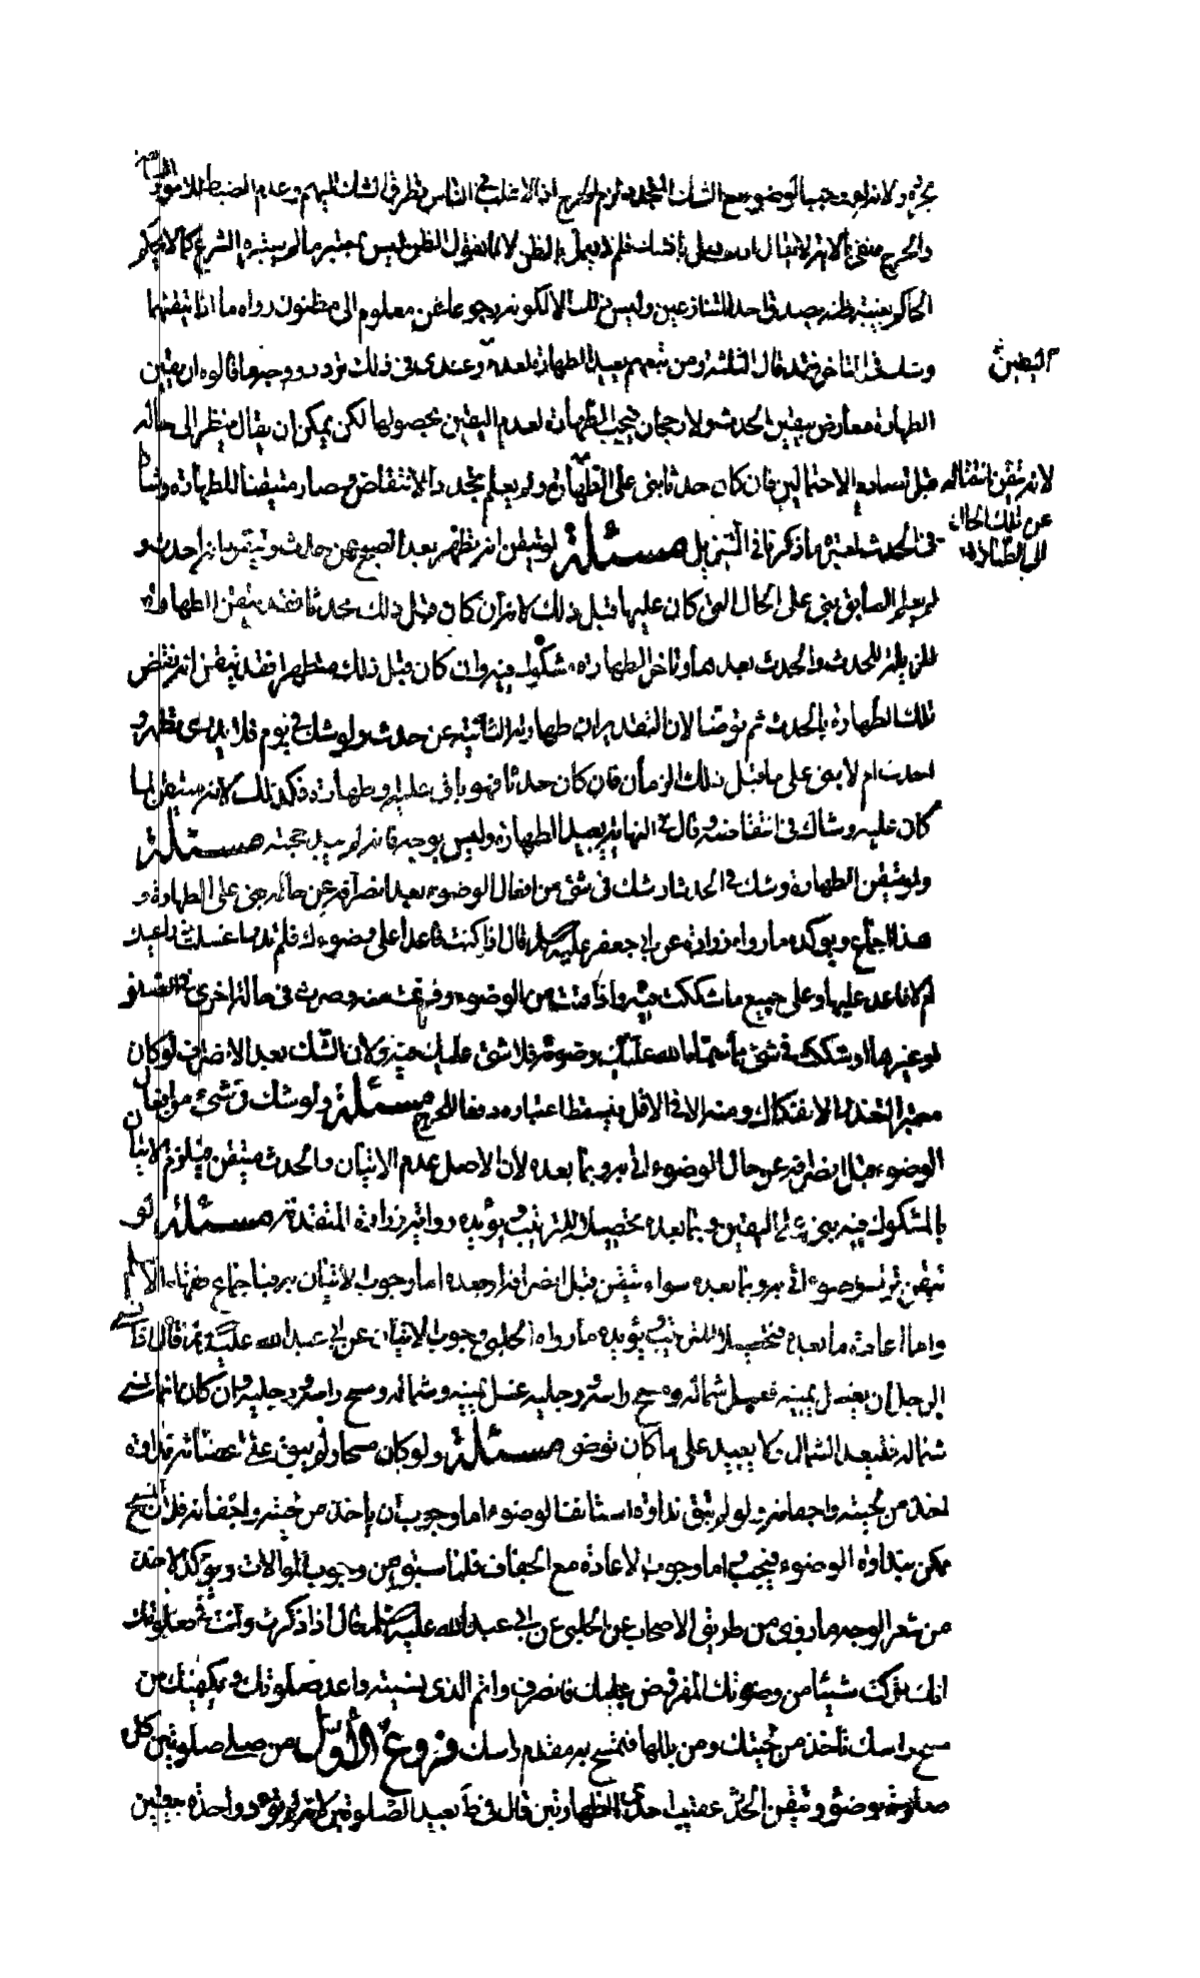 يجزيه ولانه لو وجب الوضوء مع الشك المتجدد لزم الحرج اذ الاغلب في الناس تطرق الشك اليهم وعدم الضبط للامور
والحرج منفي بالآية لا يقال
الحاكم بظنه بصدق احد المتنازعين وليس ذلك الا لكونه رجوعا عن معلوم الى مظنون رواه ما اذا تيقنهما
وشك في المتأخر فقد قال الثلثة ومن تبعهم يعيد الطهارة وعندي في ذلك تردد ووجه ما قالوه ان يقين
اليقين
الطهارة معارض بيقين الحدث ولا رجحان فيجب الطهارة لعدم اليقين بحصولها لكن يمكن ان يقال ينظر الى حاله
قبل تصادم الاحتمالين فان كان حدثا بنى على الطهارة
لانه تيقن انتقاله
عن تلك الحال
الى الطهارة
ولم يعلم تجدد الانتقاض فصار متيقنا للطهارة وشاكا
في الحدث فيبنى ما ذكرنا في التنزيل مسئلة لو تيقن انه تطهر بعد الصبح عن حدث وتيقن انه احدث و
لم يعلم السابق بنى على الحال التي كان عليها قبل ذلك لانه ان كان قبل ذلك محدثا فقد تيقن الطهارة
للحدث والحدث بعدها وتاخر الطهارة مشكوك فيه وان كان قبل ذلك متطهرا فقد تيقن انه نقض
تلك الطهارة بالحدث ثم توضأ لان التقدير ان طهارته الثانية عن حدث ولو شك في يوم فلا يدري تطهر و
احدث ام لا بنى على ما قبل ذلك الزمان فان كان حدثا فهو باق عليه وطهارة فكذلك لانه متيقن لما
كان عليه وشاك في انتقاضه وقال في النهاية يعيد الطهارة وليس بوجه فانه لم يبد حجته مسئلة
ولو تيقن الطهارة وشك في الحدث او شك في شئ من افعال الوضوء بعد انصرافه عن حاله بنى على الطهارة و
هذا اجماع ويؤكده ما رواه زرارة عن ابي جعفر عليه السلام قال اذا كنت قاعدا على وضوءك فلم تدر اغسلت ذراعيك
ام لا فاعد عليها وعلى جميع ما شككت فيه واذا قمت من الوضوء وفرغت منه وصرت في حالة اخرى في الصلوة
او غيرها وشككت في شئ مما سمى الله عليك وضوءه فلا شئ عليك فيه ولان الشك بعد الانصراف لو كان
معتبرا لتعذر الانفكاك منه الا في الاقل فيسقط اعتباره دفعا للحرج مسئلة ولو شك في شئ من افعال
الوضوء قبل انصرافه عن حال الوضوء اتى به وبما بعده لان الاصل عدم الاتيان والحدث متيقن فيلزم الاتيان
بالمشكوك فيه وبما بعده تحصيلا للترتيب ويؤيده رواية زرارة المتقدمة مسئلة لو
تيقن ترك عضو اتى به وبما بعده سواء تيقن قبل انصرافه او بعده اما وجوب الاتيان به فباجماع فقهاء الاسلام
واما اعادة ما بعده فتحصيلا للترتيب ويؤيده ما رواه الحلبي وجوب الاتيان عن ابي عبدالله عليه السلام قال اذا نسي
الرجل ان يغسل يمينه فغسل شماله ومسح راسه ورجليه غسل يمينه وشماله ومسح راسه ورجليه وان كان انما نسي
شماله فليعد الشمال ولا يعيد على ما كان توضو مسئلة ولو كان مسحا ولم يبق على اعضائه نداوة
اخذ من لحيته واجفانه ولو لم يبق نداوة استانف الوضوء اما وجوب ان ياخذ من لحيته واجفانه فلان المسح
ممكن بنداوة الوضوء فيجب اما وجوب الاعادة مع الجفاف فلما سبق من وجوب الموالات ويؤكد الاخذ
من شعر الوجه ما روى من طريق الاصحاب عن الحلبي عن ابي عبدالله عليه السلام قال اذا ذكرت وانت في صلوتك
انك تركت شيئا من وضوئك المفروض عليك فانصرف واتم الذي نسيته واعد صلوتك ويكفيك من
مسح راسك ان تأخذ من لحيتك ومن بللها فتمسح به مقدم راسك فروع الأول من صلى صلوتين كل
صلوة بوضوء وتيقن الحدث عقيب احدى الطهارتين قال في ط يعيد الصلوتين لانه لم يؤد واحدة بيقين